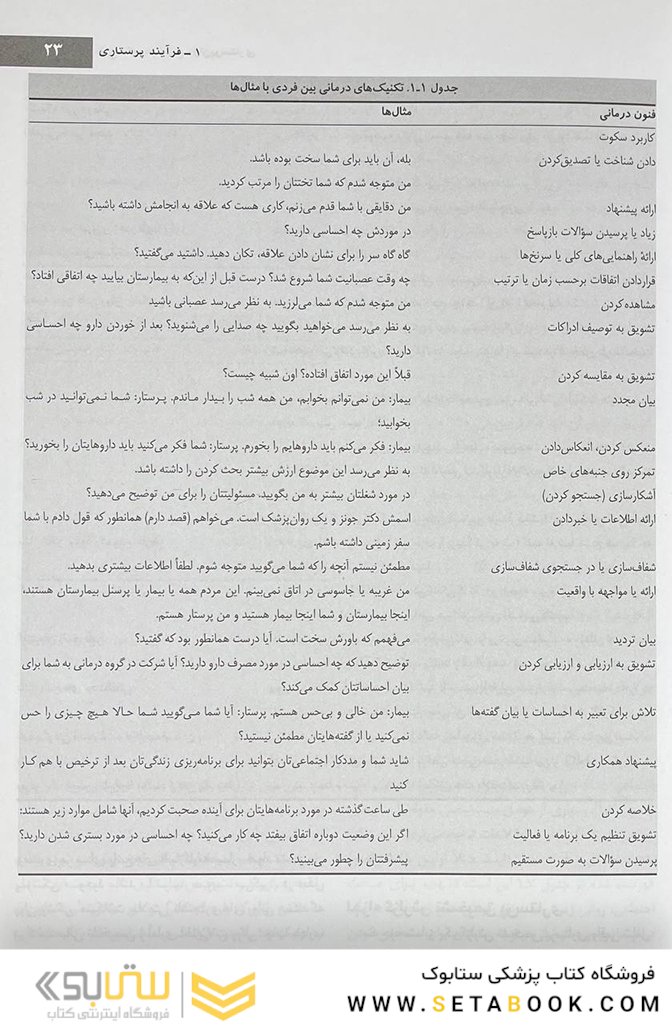 ۲۳
۱ ـ فرآیند پرستاری
جدول ۱-۱. تکنیک‌های درمانی بین فردی با مثال‌ها
فنون درمانی مثال‌ها
کاربرد سکوت
دادن شناخت یا تصدیق‌کردن بله، آن باید برای شما سخت بوده باشد.
من متوجه شدم که شما تختتان را مرتب کردید.
ارائه پیشنهاد من دقایقی با شما قدم می‌زنم، کاری هست که علاقه به انجامش داشته باشید؟
زیاد یا پرسیدن سؤالات بازپاسخ در موردش چه احساسی دارید؟
ارائهٔ راهنمایی‌های کلی یا سرنخ‌ها گاه گاه سر را برای نشان دادن علاقه، تکان دهید. داشتید می‌گفتید؟
قراردادن اتفاقات برحسب زمان یا ترتیب چه وقت عصبانیت شما شروع شد؟ درست قبل از این‌که به بیمارستان بیایید چه اتفاقی افتاد؟
مشاهده‌کردن من متوجه شدم که شما می‌لرزید. به نظر می‌رسد عصبانی باشید
تشویق به توصیف ادراکات به نظر می‌رسد می‌خواهید بگویید چه صدایی را می‌شنوید؟ بعد از خوردن دارو چه احساسی
دارید؟
تشویق به مقایسه کردن قبلاً این مورد اتفاق افتاده؟ اون شبیه چیست؟
بیان مجدد بیمار: من نمی‌توانم بخوابم، من همه شب را بیدار ماندم. پرستار: شما نمی‌توانید در شب
بخوابید؛
منعکس کردن، انعکاس‌دادن بیمار: فکر می‌کنم باید داروهایم را بخورم. پرستار: شما فکر می‌کنید باید داروهایتان را بخورید؟
تمرکز روی جنبه‌های خاص به نظر می‌رسد این موضوع ارزش بیشتر بحث کردن را داشته باشد.
آشکارسازی (جستجو کردن) در مورد شغلتان بیشتر به من بگویید. مسئولیتتان را برای من توضیح می‌دهید؟
ارائه اطلاعات یا خبردادن اسمش دکتر جونز و یک روان‌پزشک است. می‌خواهم (قصد دارم) همانطور که قول دادم با شما
سفر زمینی داشته باشم.
شفاف‌سازی یا در جستجوی شفاف‌سازی مطمئن نیستم آنچه را که شما می‌گویید متوجه شوم. لطفاً اطلاعات بیشتری بدهید.
ارائه یا مواجهه با واقعیت من غریبه یا جاسوسی در اتاق نمی‌بینم. این مردم همه یا بیمار یا پرسنل بیمارستان هستند،
اینجا بیمارستان و شما اینجا بیمار هستید و من پرستار هستم.
بیان تردید می‌فهمم که باورش سخت است. آیا درست همانطور بود که گفتید؟
تشویق به ارزیابی و ارزیابی کردن توضیح دهید که چه احساسی در مورد مصرف دارو دارید؟ آیا شرکت در گروه درمانی به شما برای
بیان احساساتتان کمک می‌کند؟
تلاش برای تعبیر به احساسات یا بیان گفته‌ها بیمار: من خالی و بی‌حس هستم. پرستار: آیا شما می‌گویید شما حالا هیچ چیزی را حس
نمی‌کنید یا از گفته‌هایتان مطمئن نیستید؟
پیشنهاد همکاری شاید شما و مددکار اجتماعی‌تان بتوانید برای برنامه‌ریزی زندگی‌تان بعد از ترخیص با هم کار
کنید
خلاصه کردن طی ساعت گذشته در مورد برنامه‌هایتان برای آینده صحبت کردیم، آنها شامل موارد زیر هستند:
تشویق تنظیم یک برنامه یا فعالیت اگر این وضعیت دوباره اتفاق بیفتد چه کار می‌کنید؟ چه احساسی در مورد بستری شدن دارید؟
پرسیدن سؤالات به صورت مستقیم پیشرفتتان را چطور می‌بینید؟
فروشگاه کتاب پزشکی ستابوک
WWW.SETABOOK.COM
ستابوک
فروشگاه اینترنتی کتاب